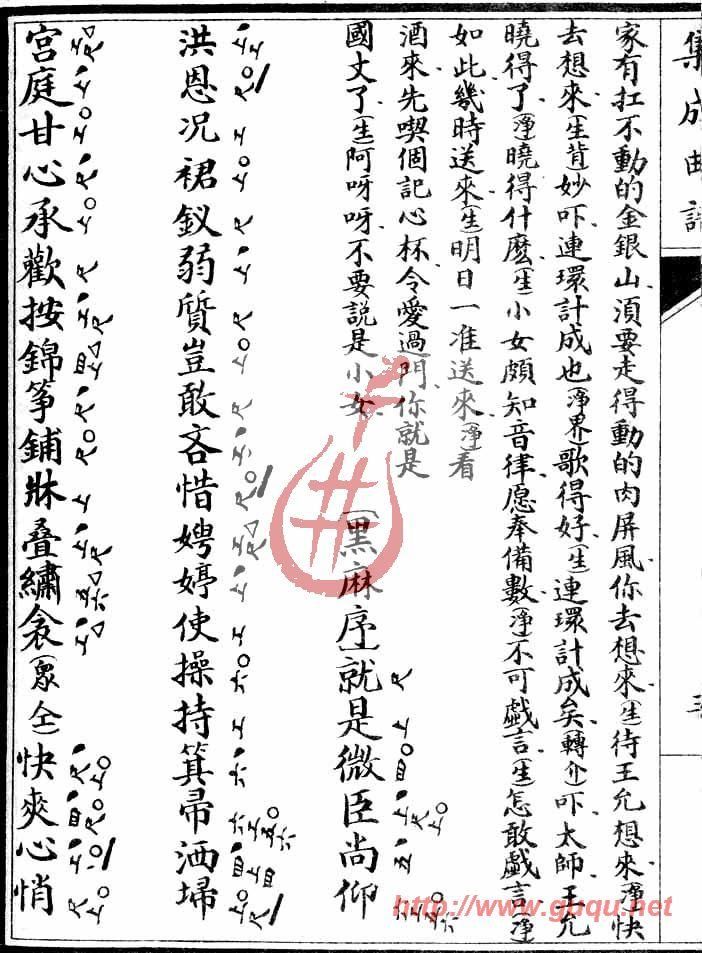 集成曲譜
家有扛不動的金銀山須要走得動的肉屏風你去想來(生)待王允想來(淨)快
去想來(生背)妙吓連環計成也(淨界)歌得好(生)連環計成矣(轉介)吓太師王允
曉得了(淨)曉得什麽(生)小女頗知音律愿奉備數(淨)不可戲言(生)怎敢戲言(淨)
如此幾時送來(生)明日一准送來(淨)看
酒來先喫個記心杯令愛過門你就是
國丈了(生)阿呀呀不要説是小女
(黑麻序)就是微臣尚仰
洪恩况裙釵弱質豈敢吝惜娉婷使操持箕帚洒埽
宮庭甘心承歡按錦筝鋪牀叠繡衾(眾仝)快爽心悄
http://www.guqu.net